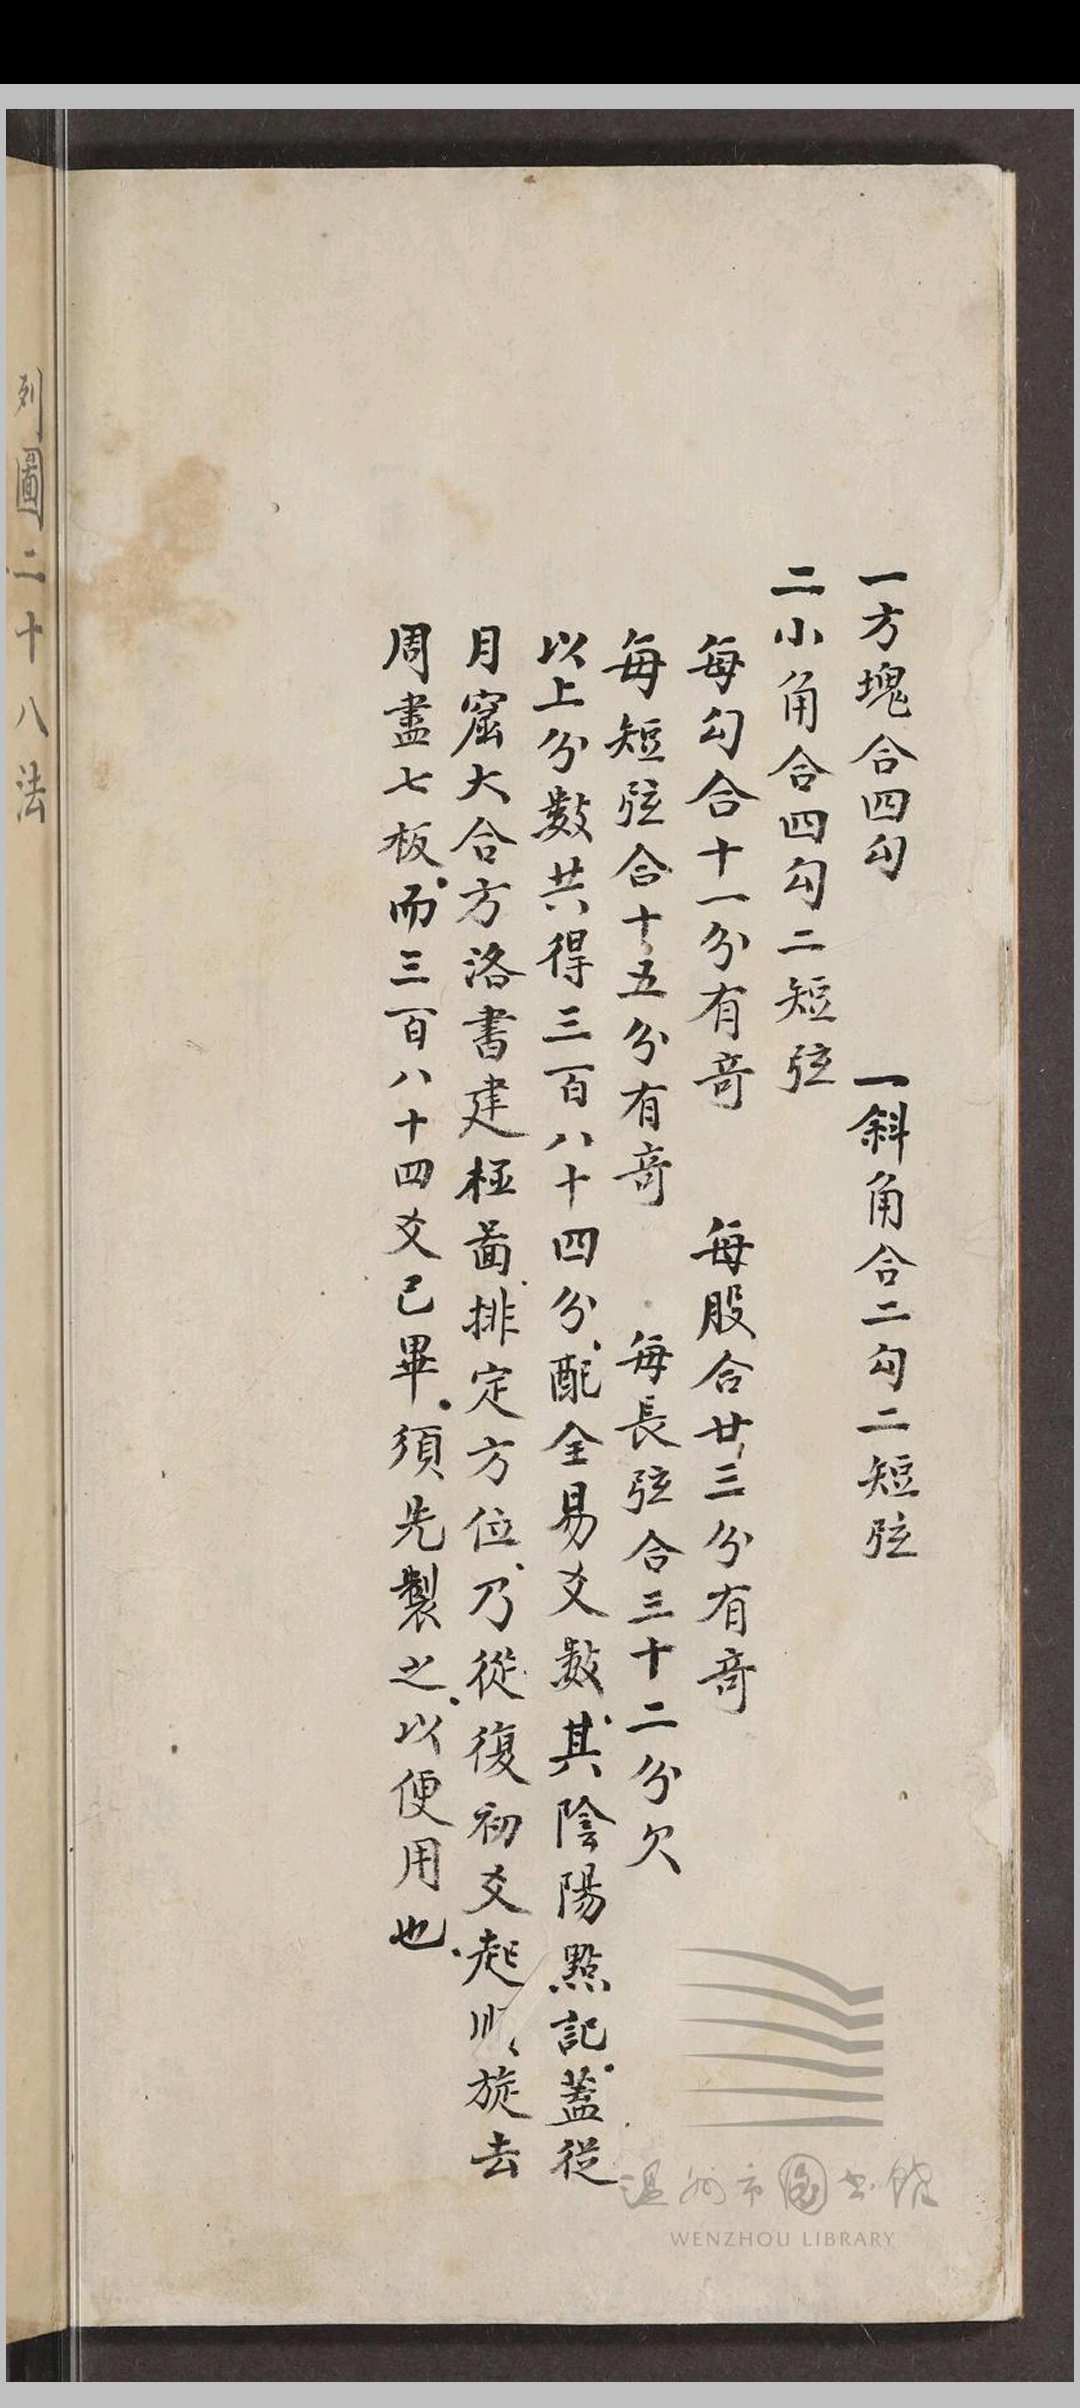 一方塊合四勾　一斜角合二勾二短弦
二小角合四勾二短弦
每勾合十一分有奇　每股合廿三分有奇
每短弦合十五分有奇　每長弦合三十二分欠
以上分數共得三百八十四分、配全易爻數、其陰陽點記、蓋從
月窟大合方洛書建極啚、排定方位、乃從復初爻起順旋去
周盡七板、而三百八十四爻已畢、須先製之、以便用也、
列圖二十八法
温州市图书馆
WENZHOU LIBRARY